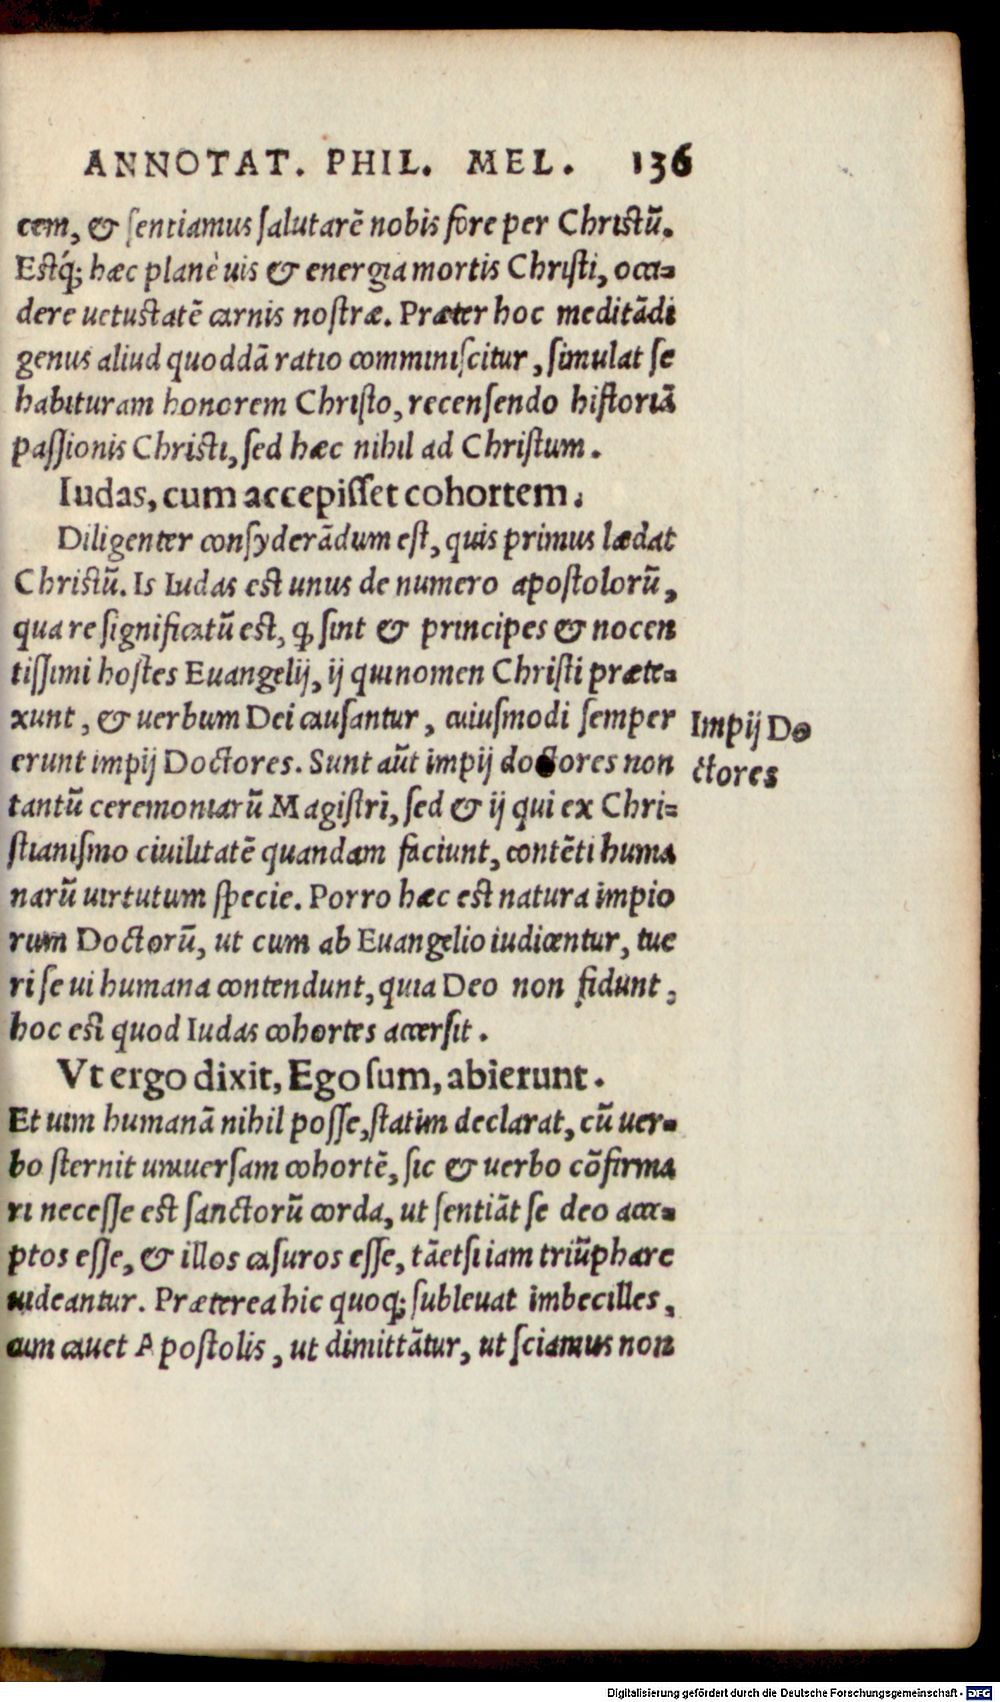 ANNOTAT. PHIL. MEL. 136
cem, & sentiamus salutarẽ nobis fore per Christũ.
Estq́; hæc planè uis & energia mortis Christi, occi=
dere uetustatẽ carnis nostræ. Præter hoc meditãdi
genus aliud quoddã ratio comminiscitur, simulat se
habituram honorem Christo, recensendo historiã
passionis Christi, sed hæc nihil ad Christum.
Iudas, cum accepisset cohortem.
Diligenter consyderãdum est, quis primus lædat
Christũ. Is Iudas est unus de numero apostolorũ,
qua re significatũ est, ꝙ sint & principes & nocen
tissimi hostes Euangelij, ij qui nomen Christi præte=
xunt, & uerbum Dei causantur, cuiusmodi semper
erunt impij Doctores. Sunt aũt impij doctores non
tantũ ceremoniarũ Magistri, sed & ij qui ex Chri=
stianismo ciuilitatẽ quandam faciunt, contẽti huma
narũ uirtutum specie. Porro hæc est natura impio
rum Doctorũ, ut cum ab Euangelio iudicentur, tue
ri se ui humana contendunt, quia Deo non fidunt,
hoc est quod Iudas cohortes accersit.
Vt ergo dixit, Ego sum, abierunt.
Et uim humanã nihil posse, statim declarat, cũ uer=
bo sternit uniuersam cohortẽ, sic & uerbo cõfirma
ri necesse est sanctorũ corda, ut sentiãt se deo acce=
ptos esse, & illos casuros esse, tãetsi iam triũphare
uideantur. Præterea hic quoq; subleuat imbecilles,
cum cauet Apostolis, ut dimittãtur, ut sciamus non
Impij Do
ctores
Digitalisierung gefördert durch die Deutsche Forschungsgemeinschaft - DFG